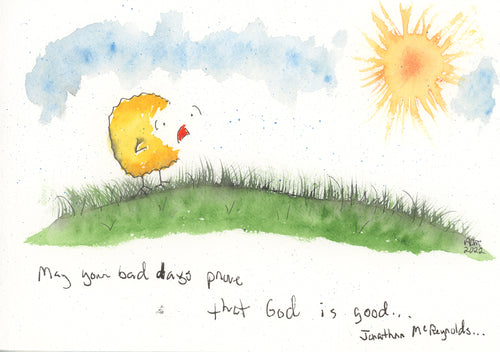 2022
May your bad days prove
that God is good...
Jonathan McReynolds...